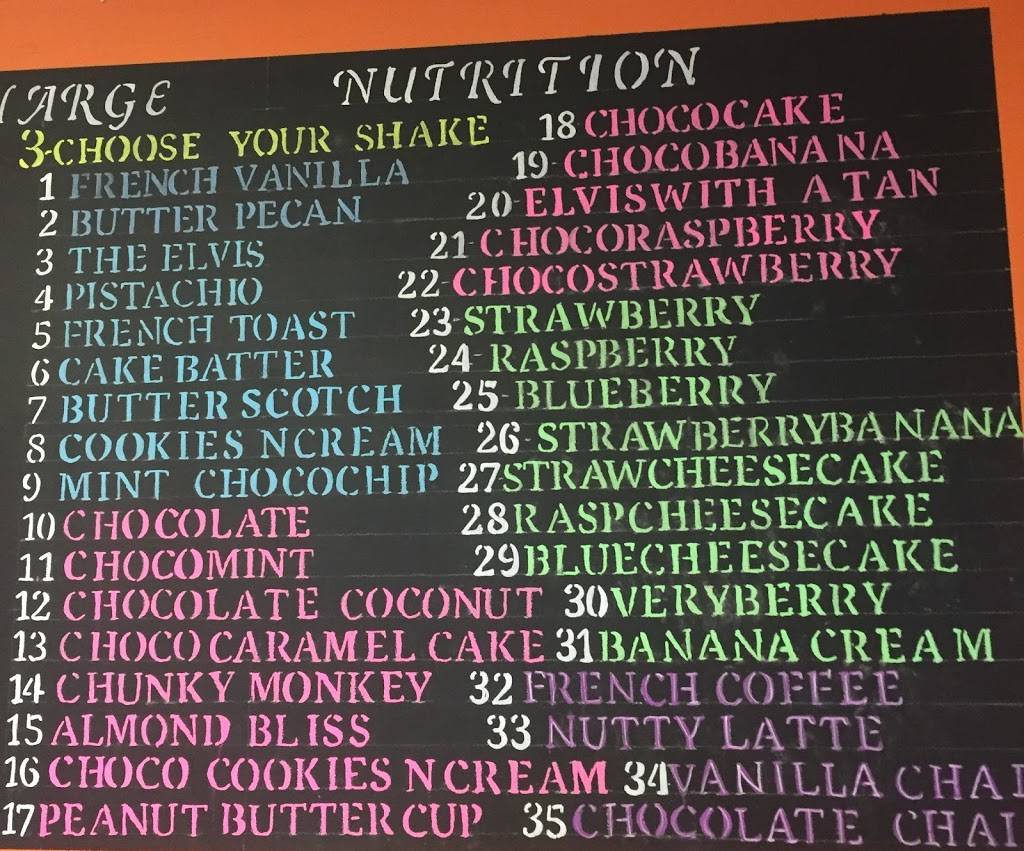 LARGE NUTRITION
3-CHOOSE YOUR SHAKE
1 FRENCH VANILLA
2 BUTTER PECAN
3 THE ELVIS
4 PISTACHIO
5 FRENCH TOAST
6 CAKE BATTER
7 BUTTER SCOTCH
8 COOKIES NCREAM
9 MINT CHOCOCHIP
10 CHOCOLATE
11 CHOCOMINT
12 CHOCOLATE COCONUT
13 CHOCO CARAMEL CAKE
14 CHUNKY MONKEY
15 ALMOND BLISS
16 CHOCO COOKIES NCREAM
17 PEANUT BUTTER CUP
18 CHOCOCAKE
19- CHOCOBANANA
20-ELVISWITH A TAN
21-CHOCORASPBERRY
22-CHOCOSTRAWBERRY
23-STRAWBERRY
24- RASPBERRY
25-BLUEBERRY
26- STRAWBERRYBANANA
27STRAWCHEESECAKE
28RASPCHEESECAKE
29BLUECHEESECAKE
30VERYBERRY
31BANANA CREAM
32 FRENCH COFFEE
33 NUTTY LATTE
34VANILLA CHAI
35 CHOCOLATE CHAI